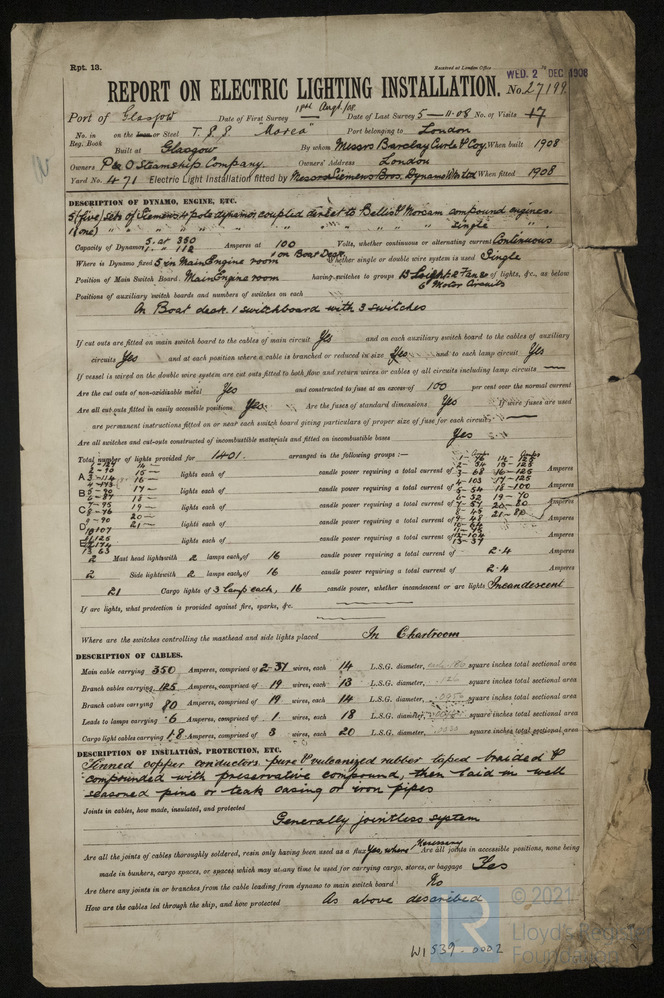 Rpt. 13.
Received at London Office WED. 2 DEC 1908
REPORT ON ELECTRIC LIGHTING INSTALLATION. No. 27199
Port of Glasgow Date of First Survey 1908 Date of Last Survey 5-11-08 No. of Visits 17
No. in Reg. Book on the Iron or Steel T.S.S. "Morea" Port belonging to London
Built at Glasgow By whom Messrs Barclay Curle & Coy. When built 1908
Owners P & O Steamship Company. Owners' Address London
Yard No. 471 Electric Light Installation fitted by Messrs Siemens Bros. Dynamo Wks Ltd When fitted 1908
DESCRIPTION OF DYNAMO, ENGINE, ETC.
5 (five) sets of Siemens 4 pole dynamos coupled direct to Bellis & Morcom compound engines.
1 (one) " " " " " " " " " " single "
Capacity of Dynamos 5 at 350 1 " 112 Amperes at 100 Volts, whether continuous or alternating current Continuous
Where is Dynamo fixed 5 in Main Engine room 1 on Boat Deck Whether single or double wire system is used Single
Position of Main Switch Board Main Engine room having switches to groups 13 Light 2 Fan & 6 Motor Circuits of lights, &c., as below
Positions of auxiliary switch boards and numbers of switches on each
On Boat deck 1 switchboard with 3 switches
If cut outs are fitted on main switch board to the cables of main circuit Yes and on each auxiliary switch board to the cables of auxiliary
circuits Yes and at each position where a cable is branched or reduced in size Yes and to each lamp circuit Yes
If vessel is wired on the double wire system are cut outs fitted to both flow and return wires or cables of all circuits including lamp circuits —
Are the cut outs of non-oxidizable metal Yes and constructed to fuse at an excess of 100 per cent over the normal current
Are all cut outs fitted in easily accessible positions Yes Are the fuses of standard dimensions Yes If wire fuses are used
are permanent instructions fitted on or near each switch board giving particulars of proper size of fuse for each circuit —
Are all switches and cut-outs constructed of incombustible materials and fitted on incombustible bases Yes
Total number of lights provided for 1401 arranged in the following groups :—
A lights each of candle power requiring a total current of Amperes
B lights each of candle power requiring a total current of Amperes
C lights each of candle power requiring a total current of Amperes
D lights each of candle power requiring a total current of Amperes
E lights each of candle power requiring a total current of Amperes
2 Mast head lights with 2 lamps each of 16 candle power requiring a total current of 2.4 Amperes
2 Side lights with 2 lamps each of 16 candle power requiring a total current of 2.4 Amperes
21 Cargo lights of 3 lamps each, 16 candle power, whether incandescent or arc lights Incandescent
If arc lights, what protection is provided against fire, sparks, &c.
Where are the switches controlling the masthead and side lights placed In Chartroom
DESCRIPTION OF CABLES.
Main cable carrying 350 Amperes, comprised of 2-37 wires, each 14 L.S.G. diameter, square inches total sectional area
Branch cables carrying 125 Amperes, comprised of 19 wires, each 13 L.S.G. diameter, square inches total sectional area
Branch cables carrying 80 Amperes, comprised of 19 wires, each 14 L.S.G. diameter, square inches total sectional area
Leads to lamps carrying .6 Amperes, comprised of 1 wires, each 18 L.S.G. diameter, square inches total sectional area
Cargo light cables carrying 1.8 Amperes, comprised of 3 wires, each 20 L.S.G. diameter, square inches total sectional area
DESCRIPTION OF INSULATION, PROTECTION, ETC.
Tinned copper conductors pure & vulcanized rubber taped braided &
compounded with preservative compound, then laid in well
seasoned pine or teak casing or iron pipes
Joints in cables, how made, insulated, and protected
Generally jointless system
Are all the joints of cables thoroughly soldered, resin only having been used as a flux Yes, where necessary Are all joints in accessible positions, none being
made in bunkers, cargo spaces, or spaces which may at any time be used for carrying cargo, stores, or baggage Yes
Are there any joints in or branches from the cable leading from dynamo to main switch board No
How are the cables led through the ship, and how protected As above described
© 2021
Lloyd's Register
Foundation
W1539-0002